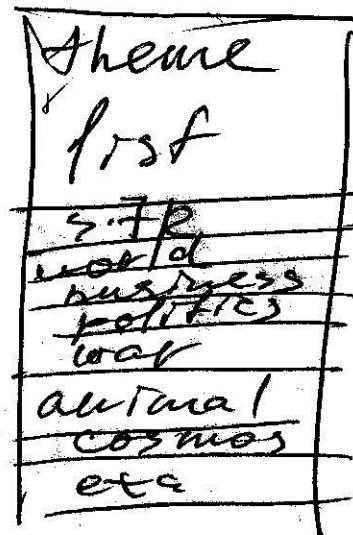 theme
list
world
business
politics
war
animal
cosmos
etc